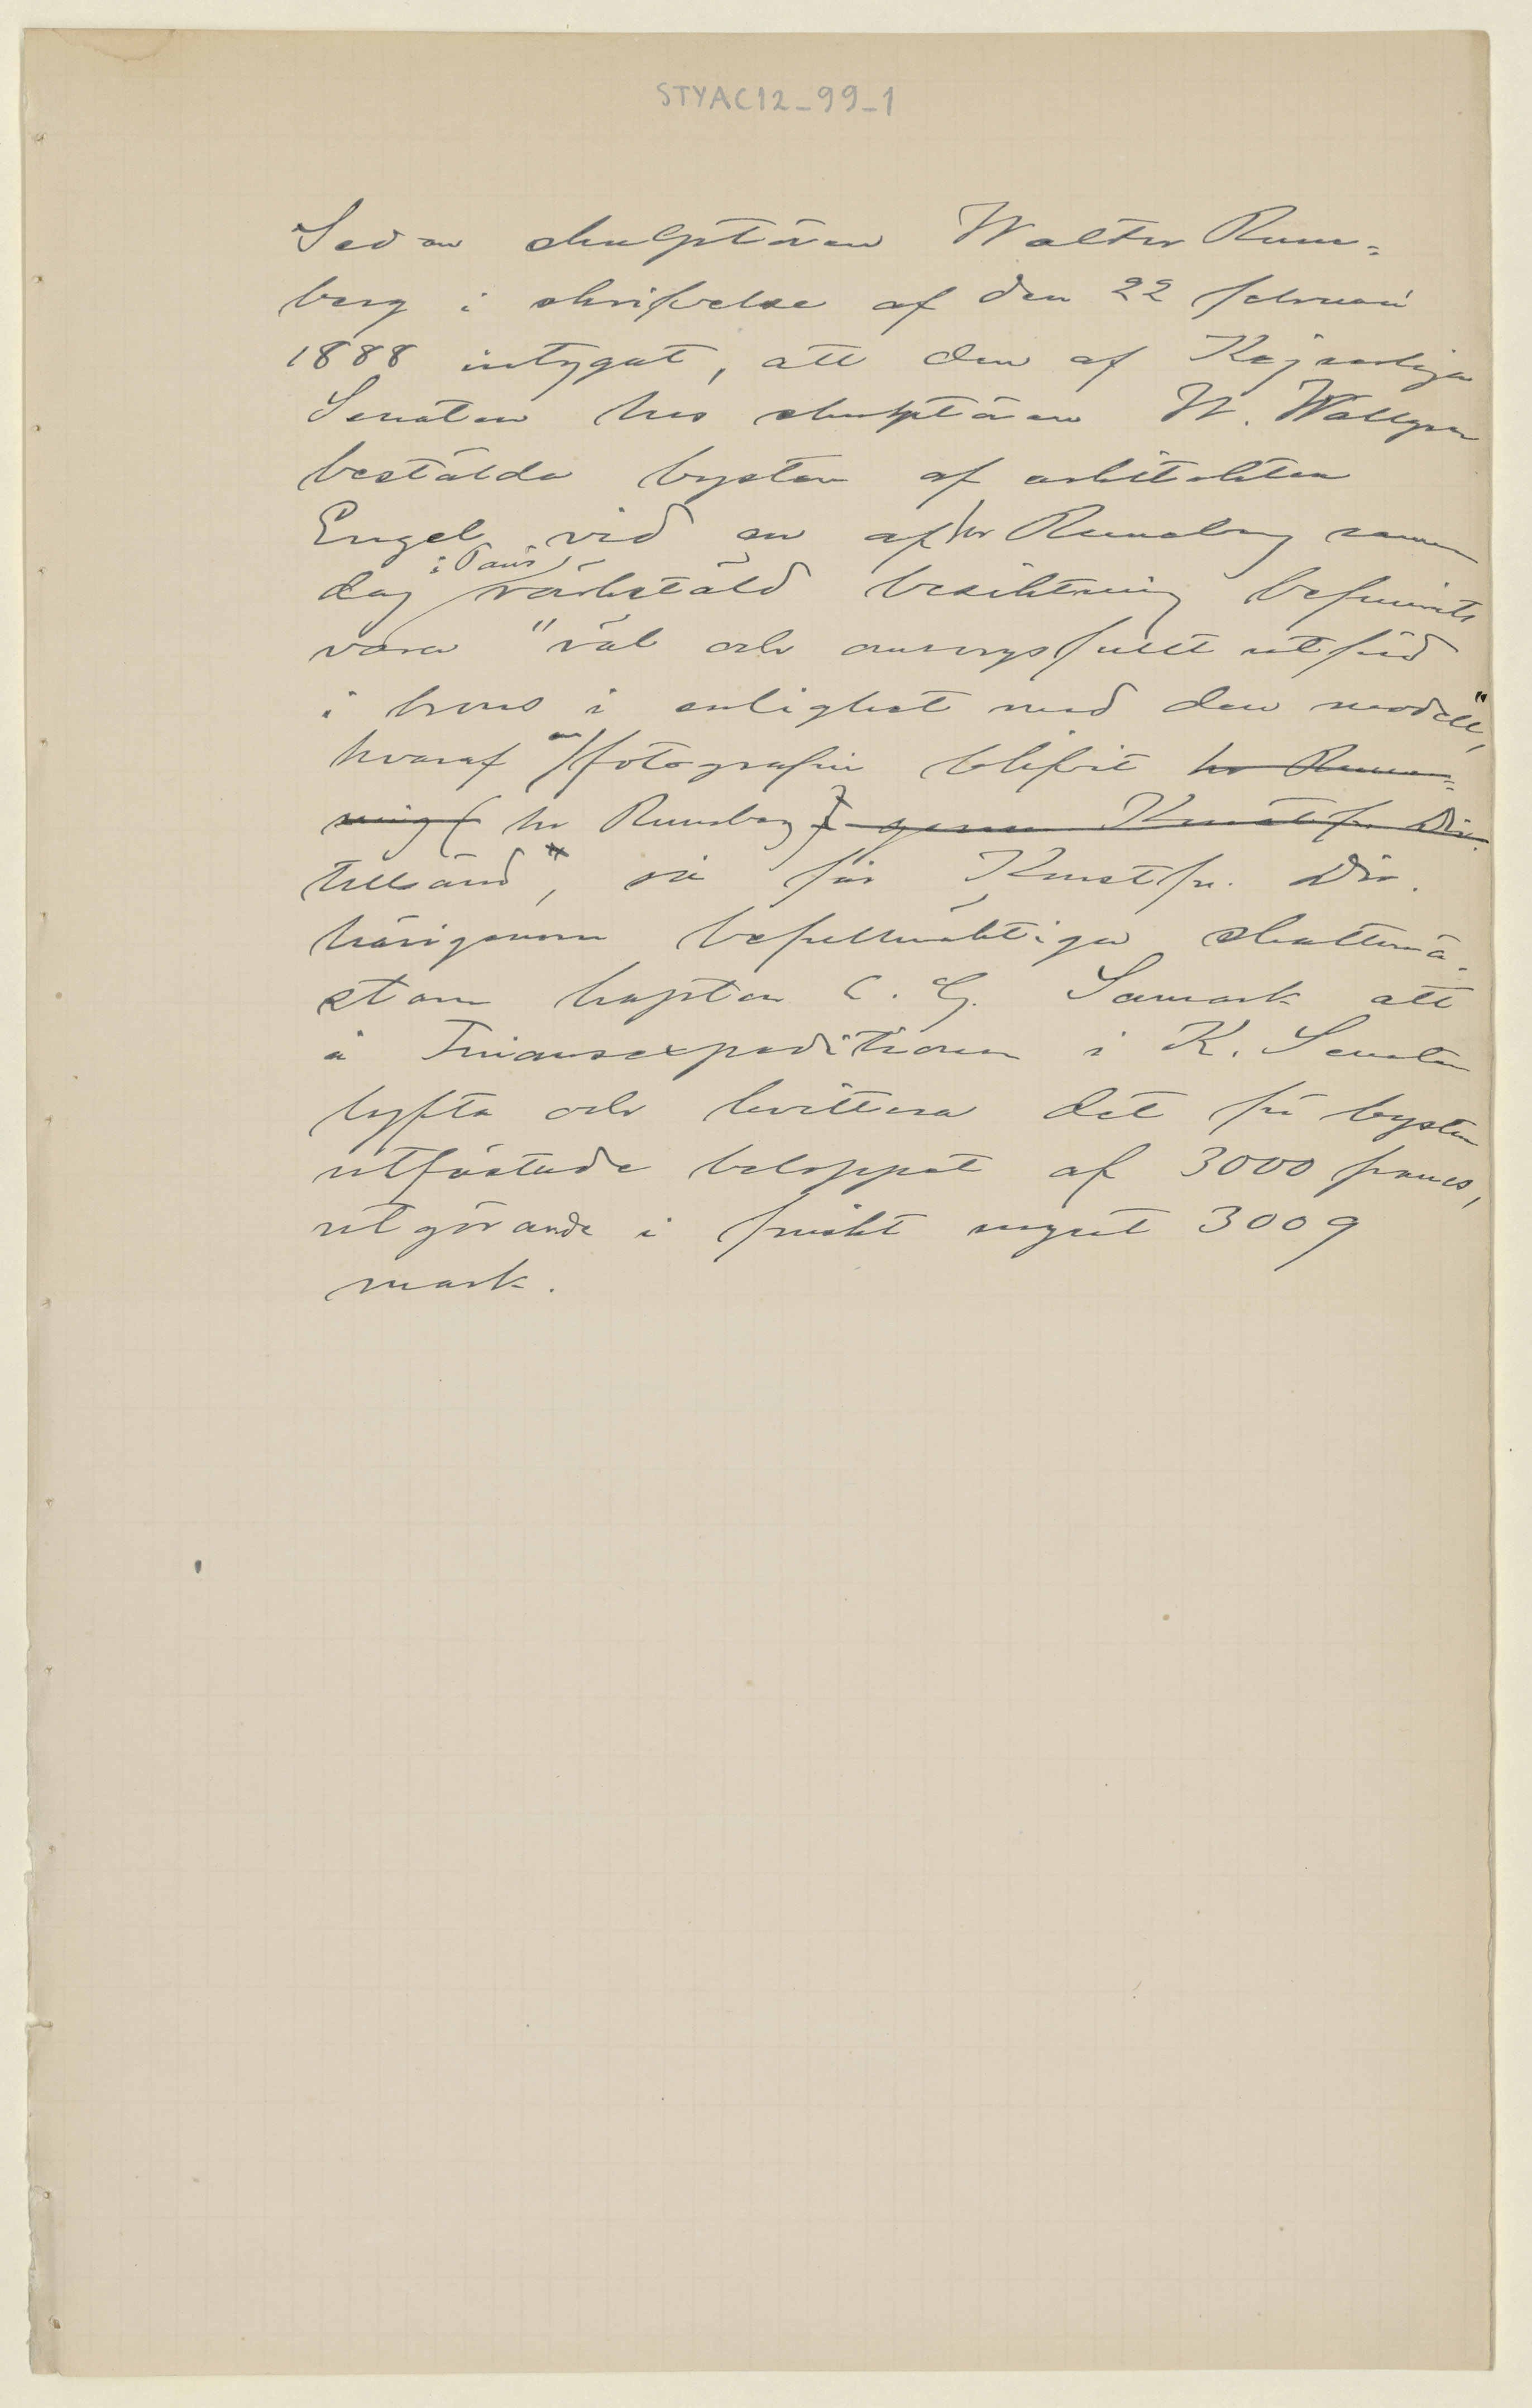 STYAC12_99_1
Sedan skulptören Walter Rune-
berg i skrifvelse af den 22 februari
1888 intygat, att den af Kejserliga
Senaten hos skulptören W. Wallgren
bestälda bysten af arkitekten
Engel vid en af hr Runeberg samma
i Paris
dag värkstäld besiktning befunnits
vara "väl och omsorgsfullt utförd
i brons i enlighet med den modell",
hvaraf en fotografi blifvit hr Rune-
hr Runeberg genom Konstfr. Dir.
tillsänd, så får Konstfr. Dir.
härigenom befullmäktiga skattmä-
staren kapten C. G. Sanmark att
å Finansexpeditionen i K. Senaten
lyfta och kvittera det för bysten
utfästade beloppet af 3000 francs,
utgörande i finskt mynt 3009
mark.